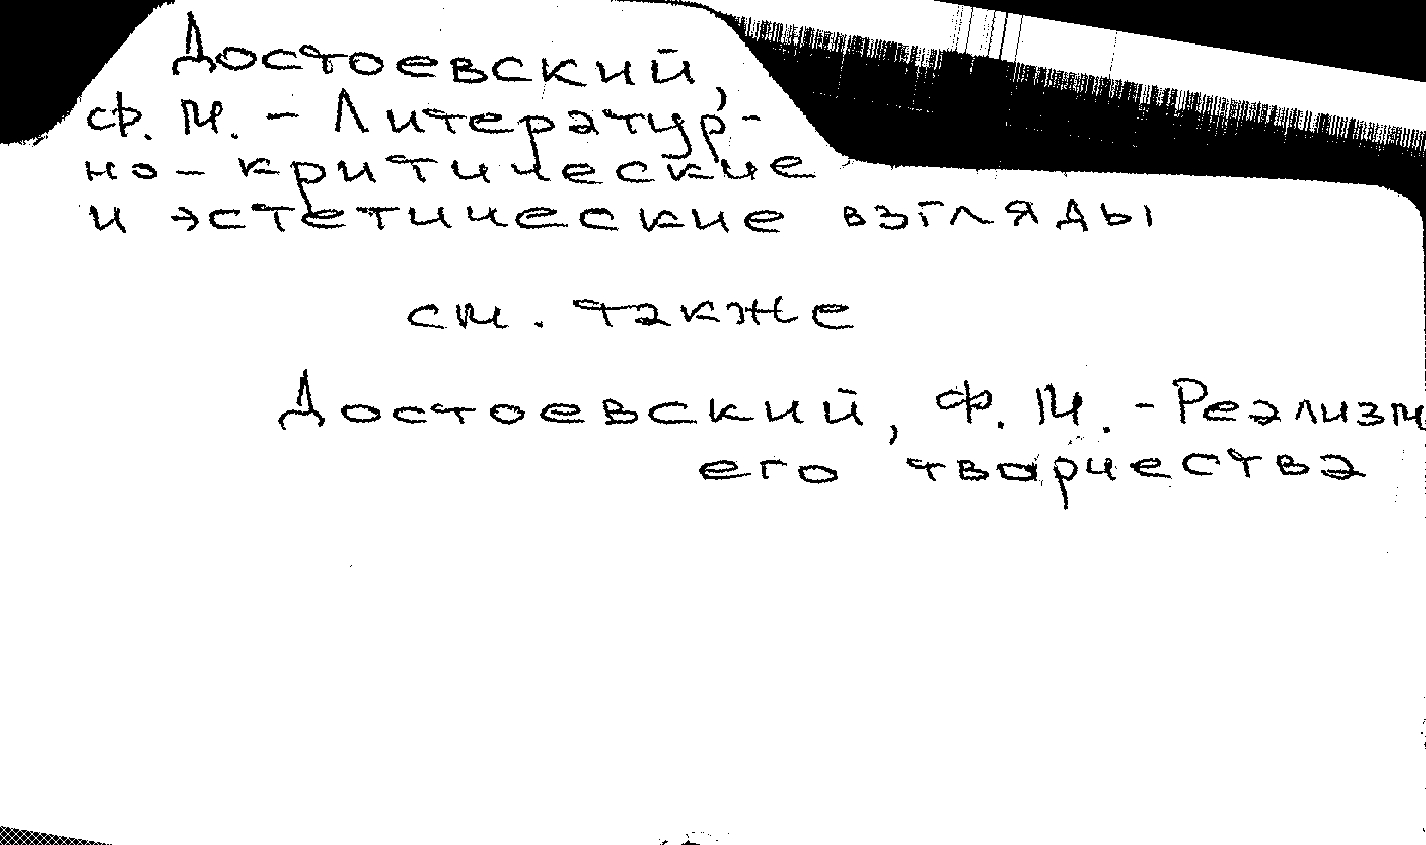 Достоевский,
Ф. М. - Литератур-
но- критические
и эстетические взгляды
см. также
Достоевский, Ф. М. - Реализм
его творчества